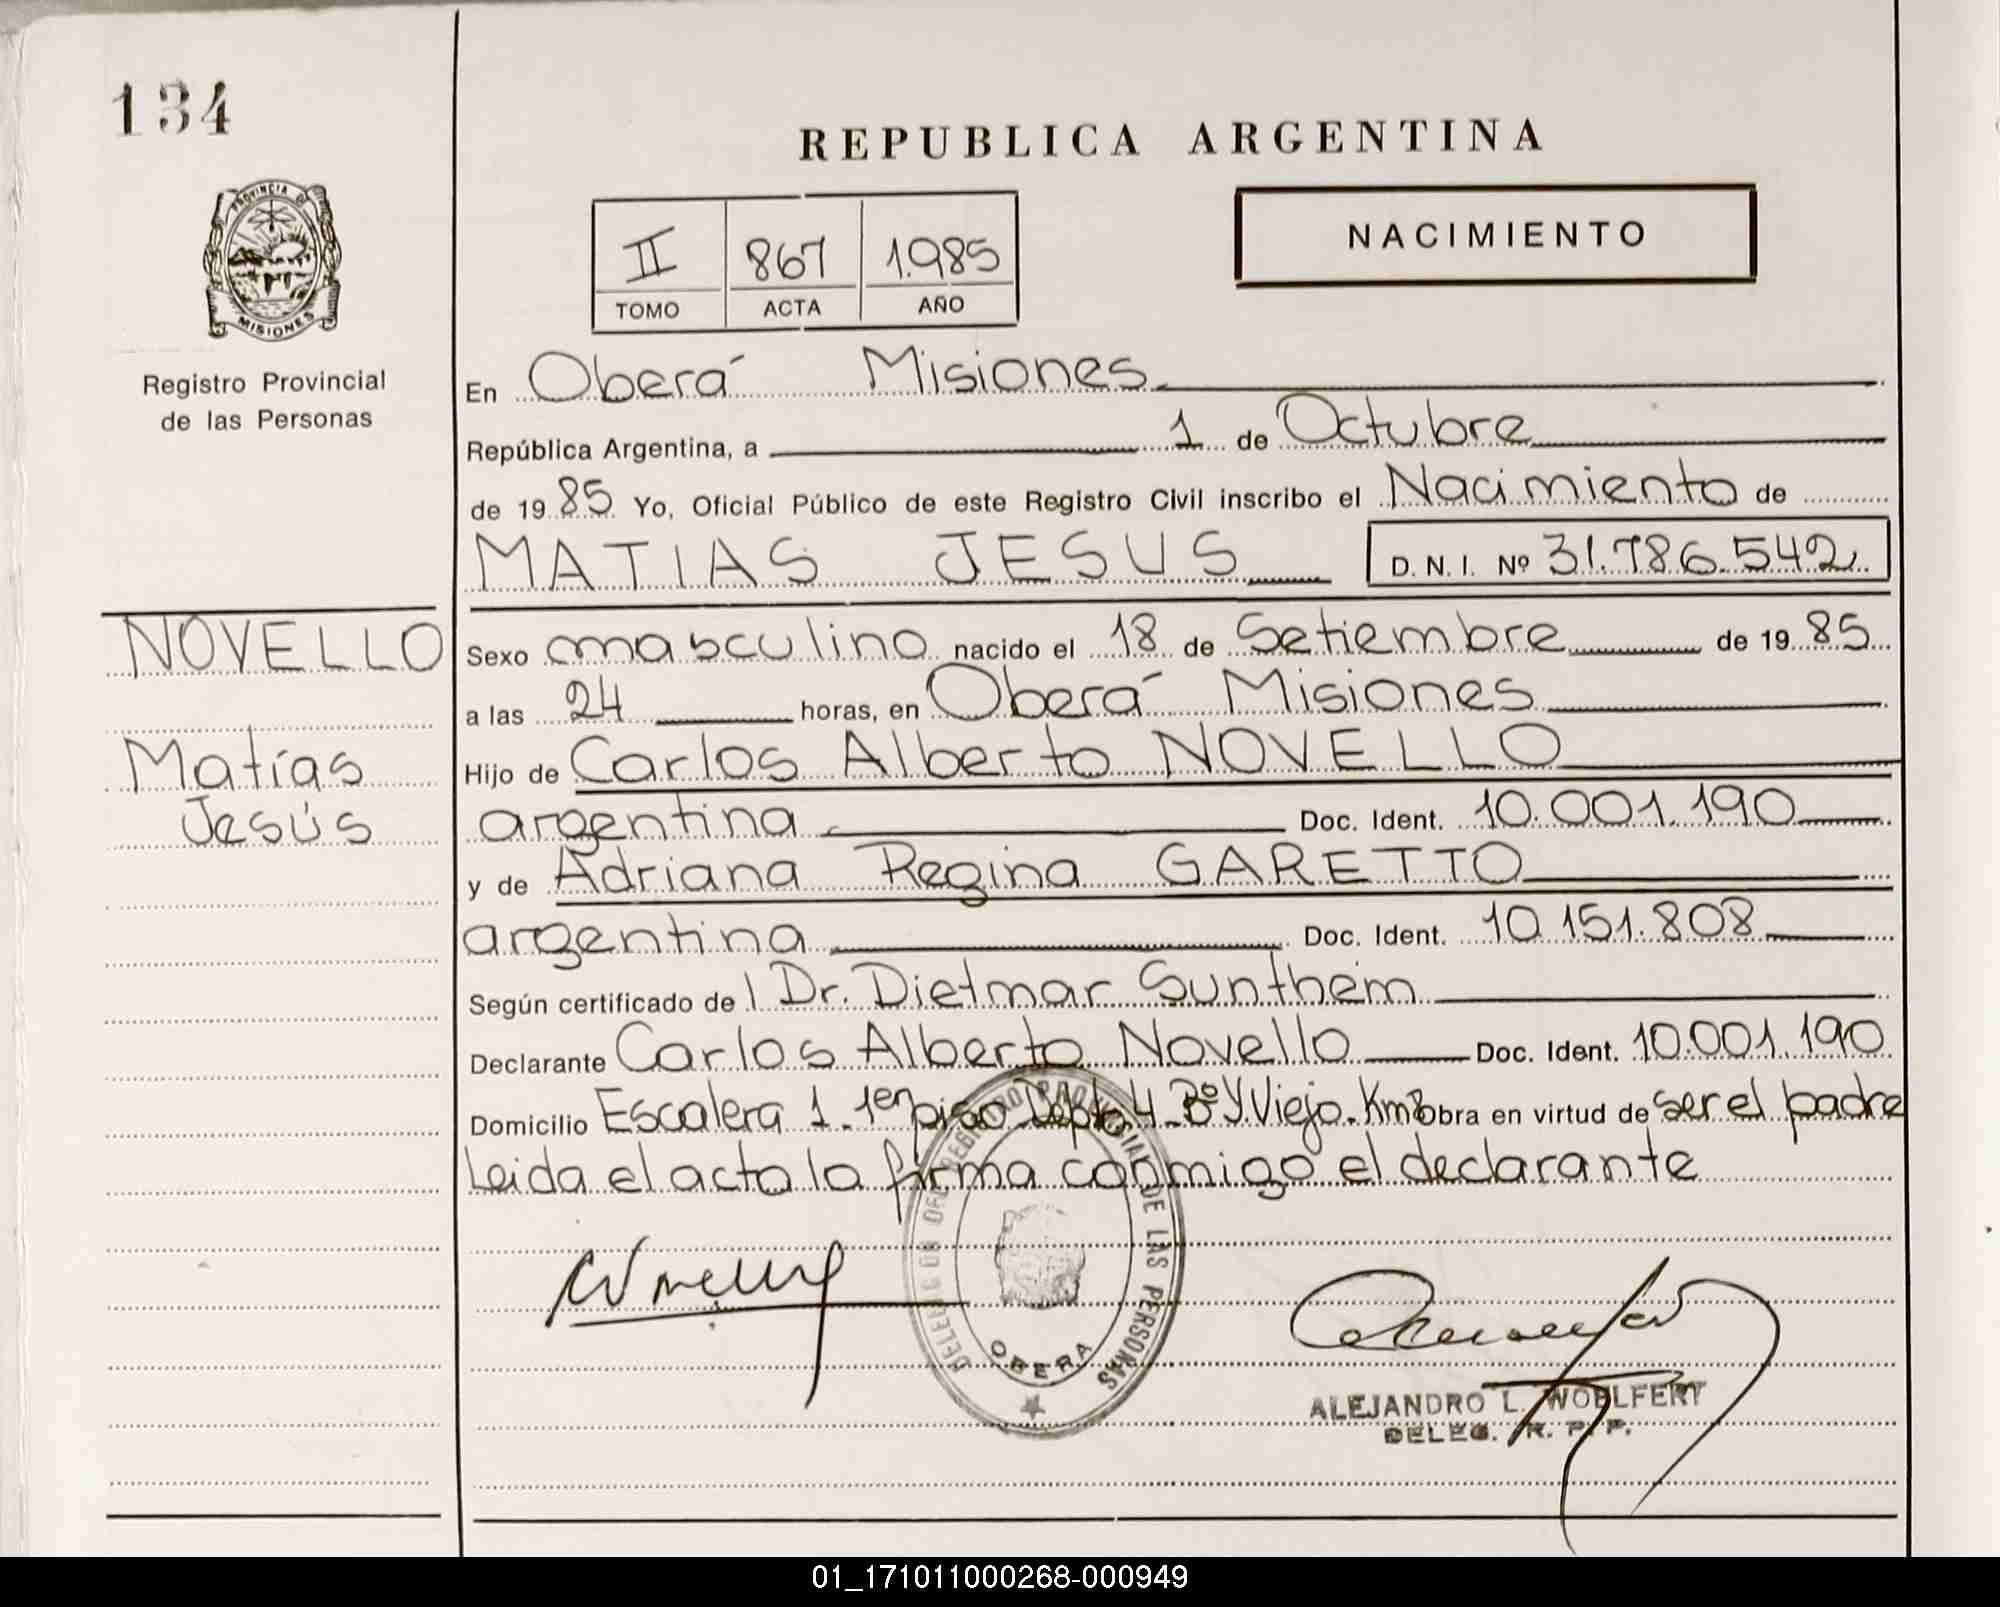 134
REPUBLICA ARGENTINA
PROVINCIA DE
MISIONES
II 867 1.985
TOMO ACTA AÑO
NACIMIENTO
Registro Provincial
de las Personas
NOVELLO
Matías
Jesús
En Oberá Misiones
República Argentina, a 1 de Octubre
de 1985 Yo, Oficial Público de este Registro Civil inscribo el Nacimiento de
MATIAS JESUS D. N. I. Nº 31.786.542
Sexo masculino nacido el 18 de Setiembre de 1985
a las 24 horas, en Oberá Misiones
Hijo de Carlos Alberto NOVELLO
argentina Doc. Ident. 10.001.190
y de Adriana Regina GARETTO
argentina Doc. Ident. 10.151.808
Según certificado de l Dr. Dietmar Sunthem
Declarante Carlos Alberto Novello Doc. Ident. 10.001.190
Domicilio Escalera 1. 1er piso Depto 4. Bº Y. Viejo. Km8 Obra en virtud de ser el padre
Leida el acta la firma conmigo el declarante
DELEGACION DEL REGISTRO PROVINCIAL DE LAS PERSONAS
OBERA
ALEJANDRO L. WOELFERT
DELEG. R. P. P.
01_171011000268-000949